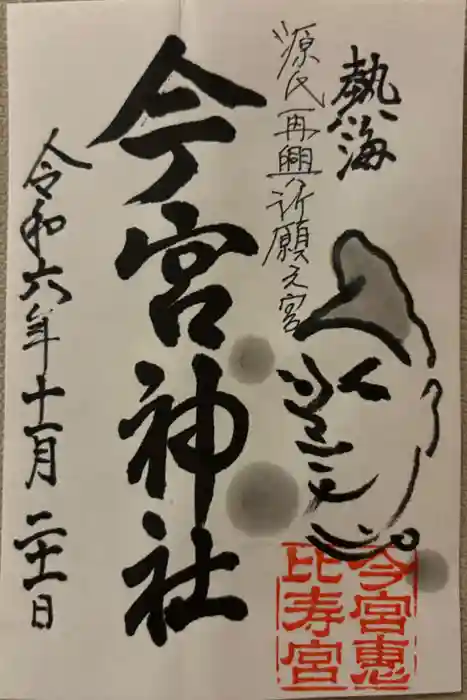 熱海
源氏再興祈願之宮
今宮神社
令和六年十一月二十二日
今宮恵
比寿宮